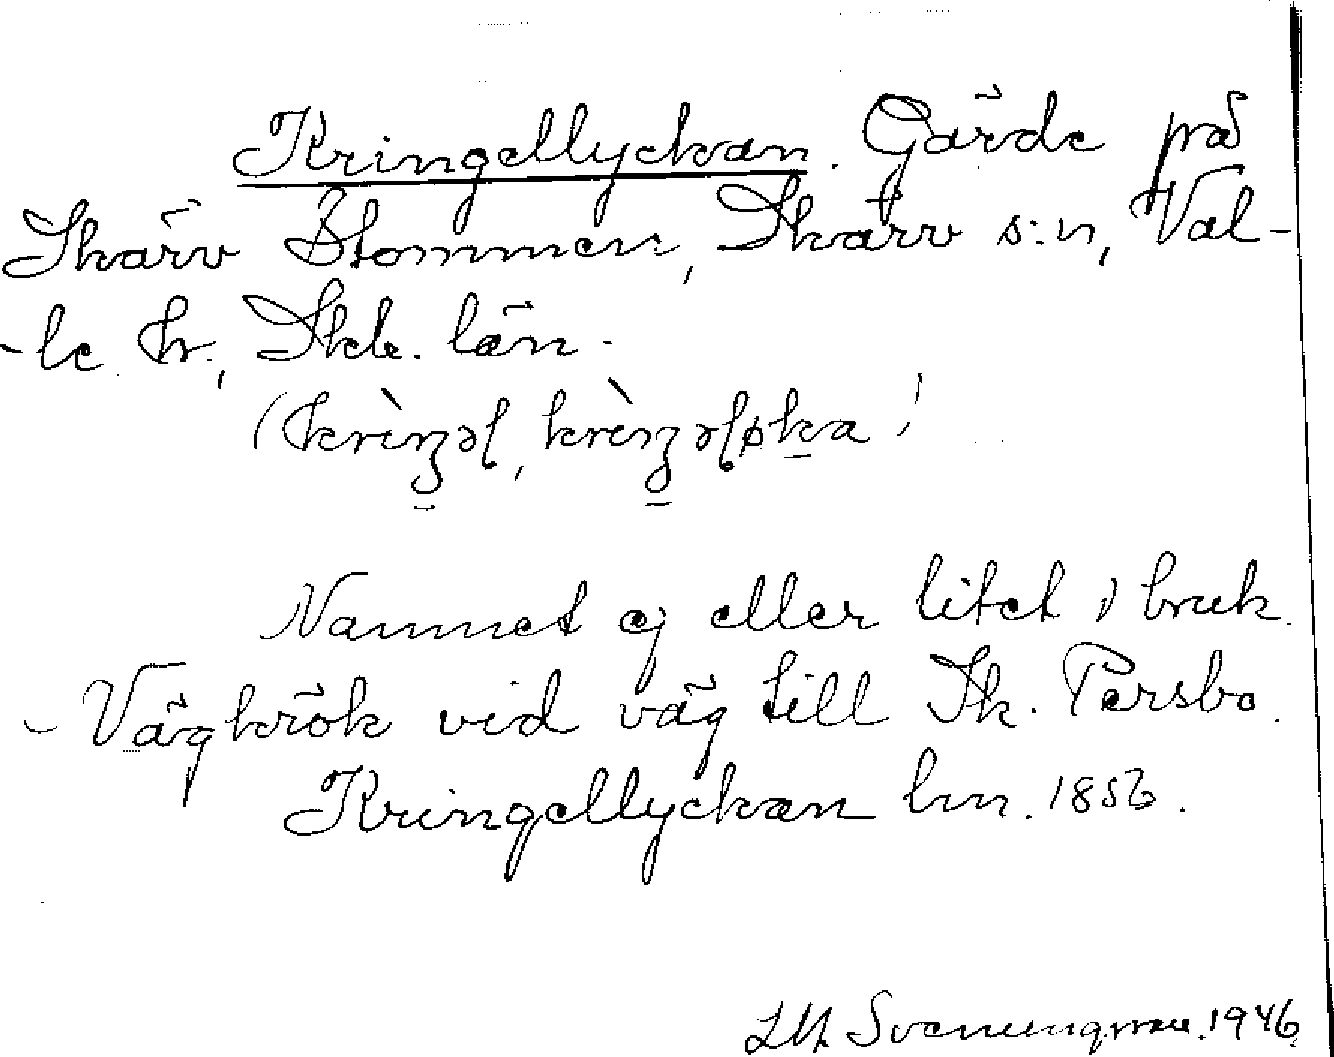 Kringellyckan. Gärde på
Skärv Stommen, Skärv s:n, Val-
-le hr., Skb. län.
(krìŋəl, krìŋəløka)
Namnet ej eller litet i bruk.
- Vägkrök vid väg till Sk. Persbo.
Kringellyckan hm. 1856.
Svenungsson. 1946